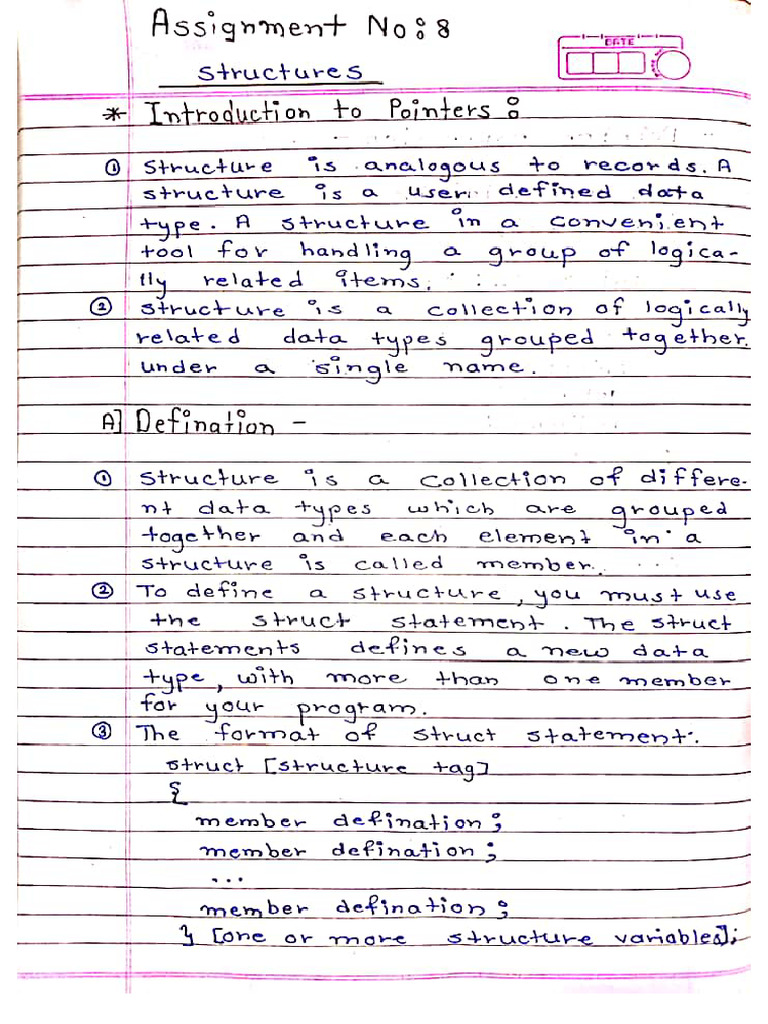 Assignment No: 8
DATE
structures
* Introduction to Pointers :
① structure is analogous to records. A
structure is a user defined data
type. A structure in a convenient
tool for handling a group of logica-
lly related items.
② structure is a collection of logically
related data types grouped together.
under a single name.
A] Defination -
① structure is a collection of differe-
nt data types which are grouped
together and each element in a
structure is called member.
② To define a structure, you must use
the struct statement. The struct
statements defines a new data
type, with more than one member
for your program.
③ The format of struct statement.
struct [structure tag]
{
member defination;
member defination;
...
member defination;
} [one or more structure variables];